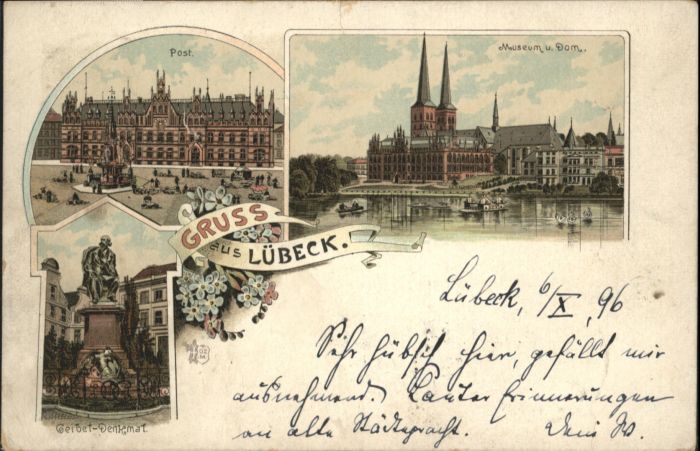 Post.
Museum u. Dom.
GRUSS
aus LÜBECK.
Geibel-Denkmal.
Lübeck, 6/X, 96
Sehr hübsch hier, gefällt mir
ausnehmend. Lauter Erinnerungen
an alte Städtepracht. Dein W.